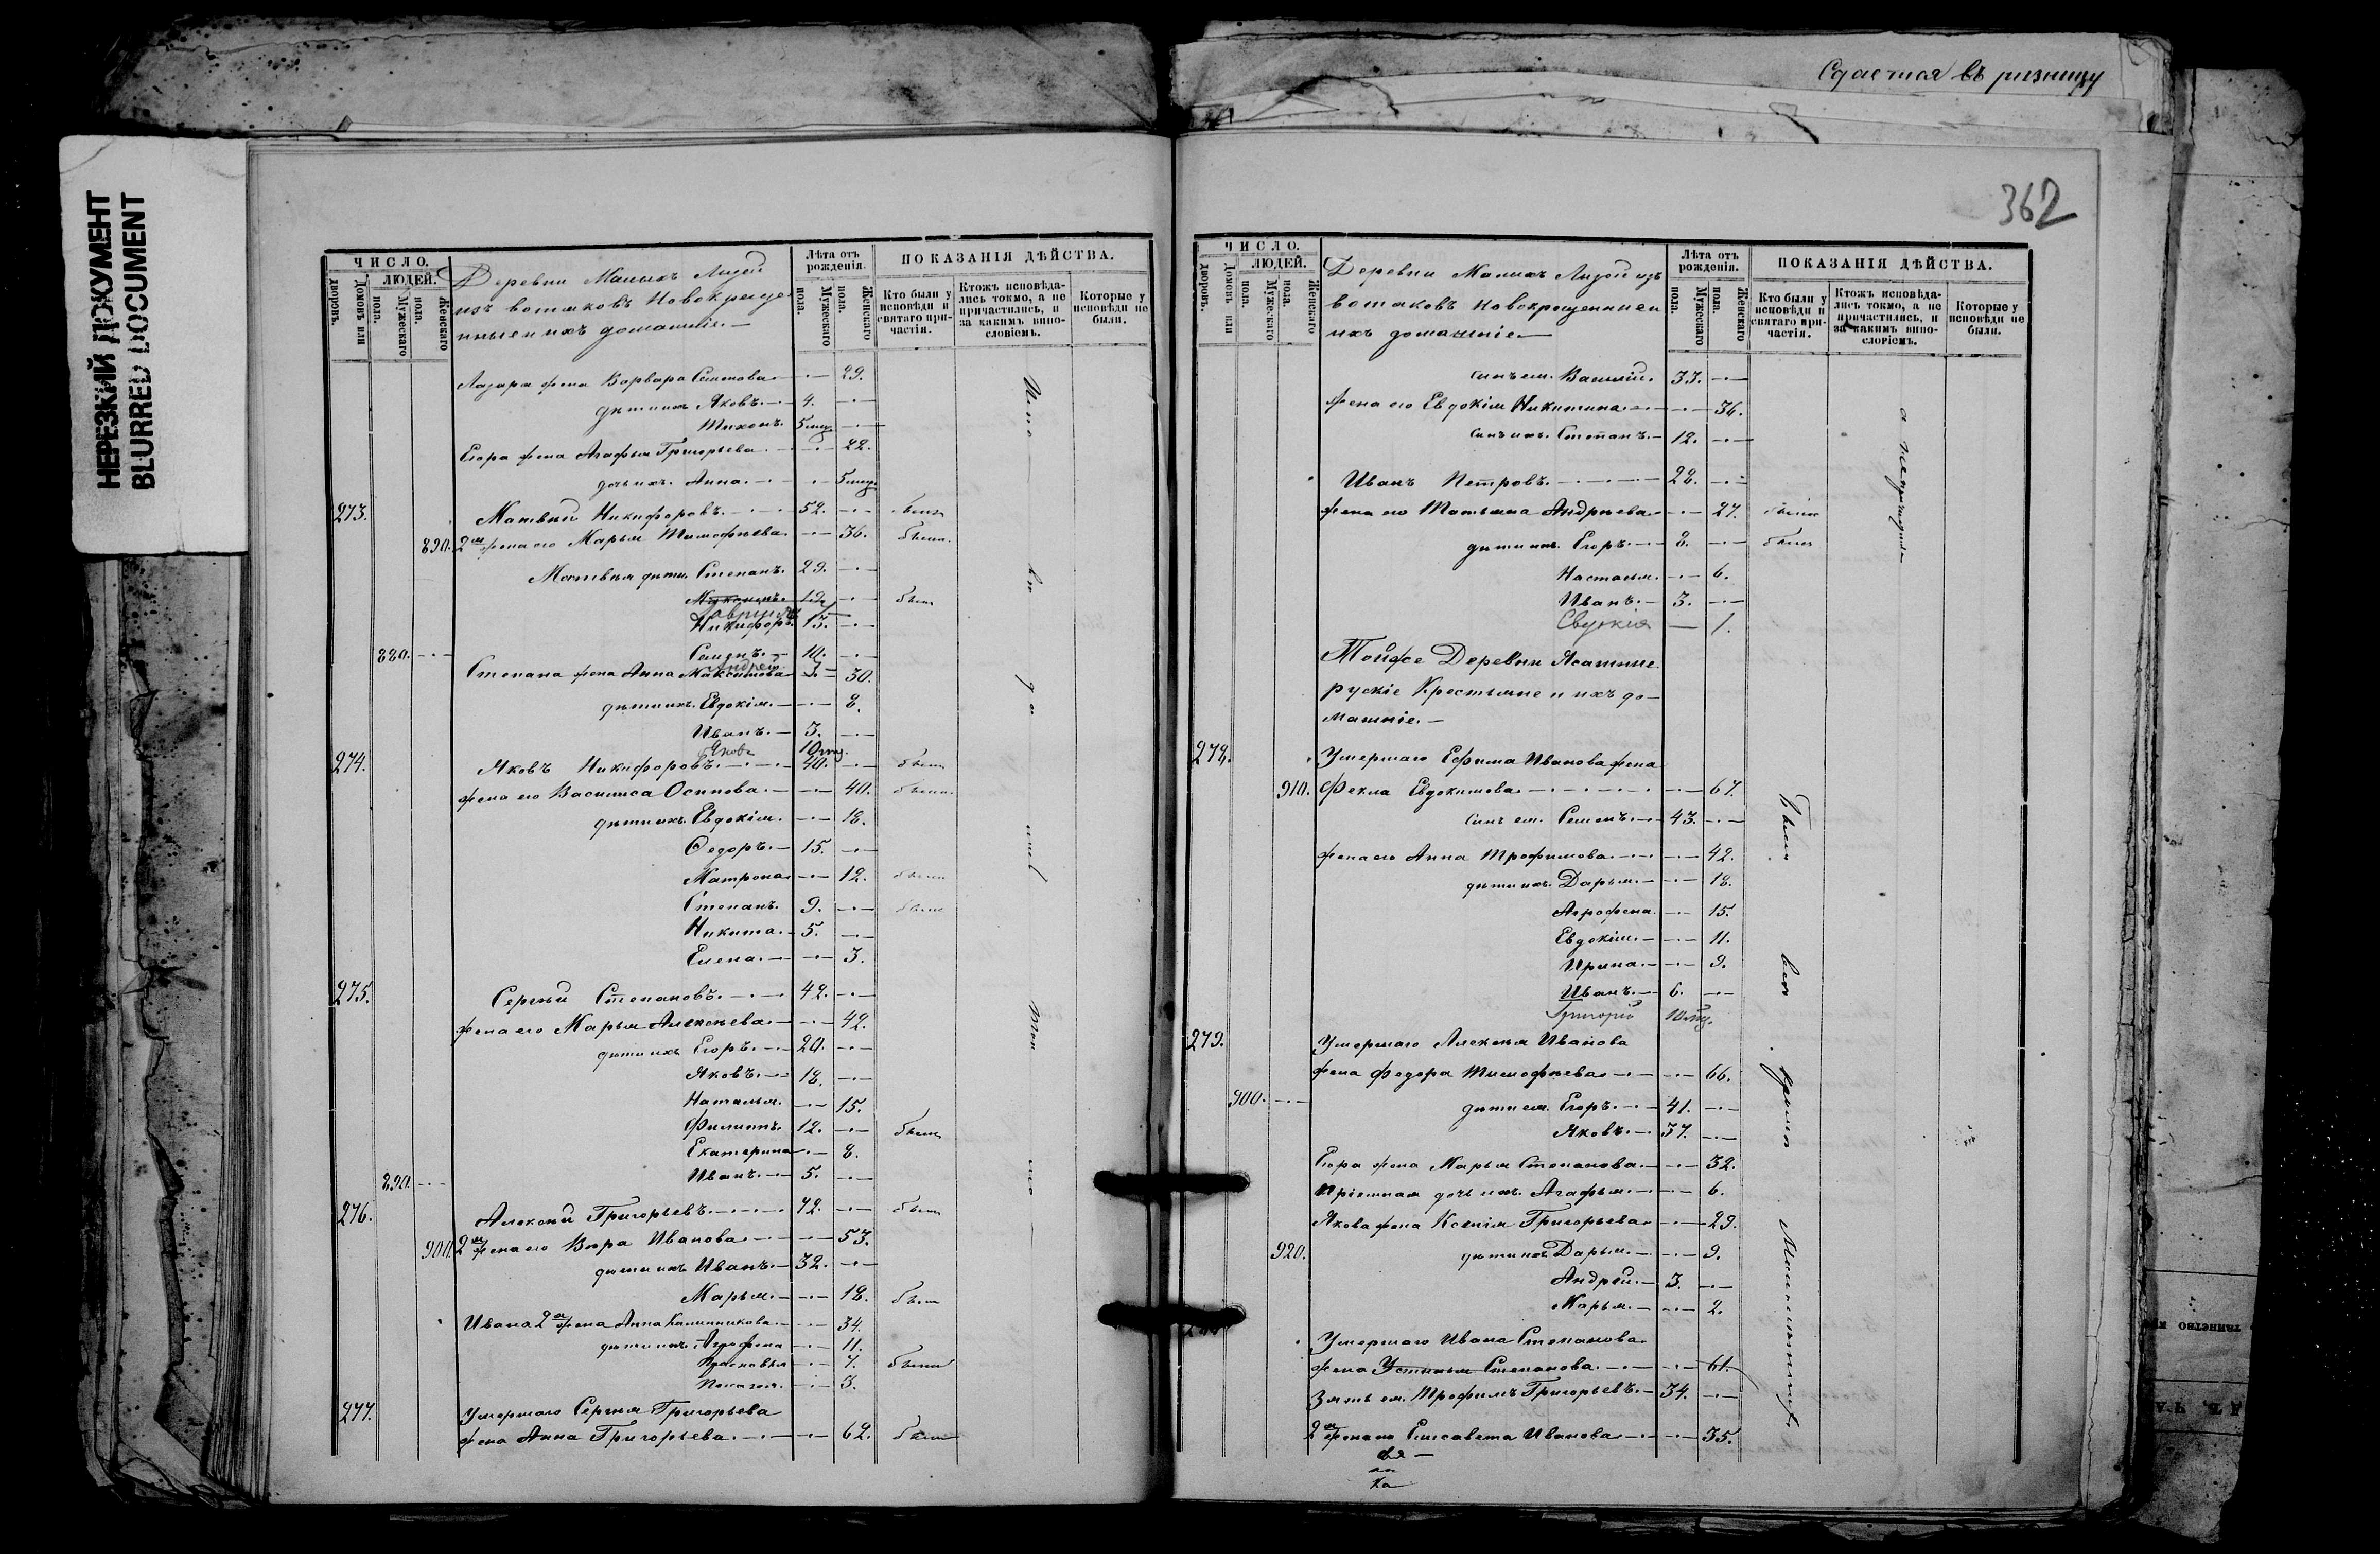 НЕРЕЗКИЙ ДОКУМЕНТ
BLURRED DOCUMENT
Сдается въ ризницу
362
ЧИСЛО.
ЛЮДЕЙ.
Домовъ или дворовъ.
Мужескаго пола.
Женскаго пола.
Деревни Малыхъ Лидзи
изъ вотяковъ Новокреще
нные и ихъ домашніе. —
Лѣта отъ рожденія.
Мужескаго пола.
Женскаго пола.
ПОКАЗАНІЯ ДѢЙСТВА.
Кто были у исповѣди и святаго причастія.
Ктожъ исповѣдались токмо, а не причастились, и за какимъ винословіемъ.
Которые у исповѣди не были.
Лазаря жена Варвара Семенова — 29.
дѣти ихъ Яковъ. — 4.
Тихонъ. 5 мц.
Егора жена Агафья Григорьева — 22.
дочь ихъ. Анна. — 5 мц.
273. Матвѣй Никифоровъ. — 52. были
890. 2я жена его Марья Тимофѣева — 36. были.
Матвѣя дѣти Степанъ. 29.
были
Гаврилъ
Никифоръ. 13.
880. Семенъ. — 10.
Андрей
Степана жена Анна Максимова — 30.
дѣти ихъ. Евдокія. — 8.
Иванъ. — 3.
Яковъ 10 мц.
274. Яковъ Никифоровъ. — 40. были
жена его Василиса Осипова. — 40. были
дѣти ихъ. Евдокія. — 18.
Ѳедоръ. — 15.
Матрона — 12. были
Степанъ. 9. были
Никита. — 5.
Елена. — 3.
275. Сергѣй Степановъ. — 42.
жена его Марья Алексѣева — 42.
дѣти ихъ Егоръ. — 20.
Яковъ. — 18.
Наталья. — 15.
Филиппъ. 12. были
Екатерина — 8.
890. Иванъ. — 5.
276. Алексѣй Григорьевъ. — 72. были
900. 2я жена его Вѣра Иванова — 53.
дѣти ихъ Иванъ. — 32.
Марья. — 18. были
Ивана 2я жена Анна Калинникова — 34.
дѣти ихъ. Агрофена — 11.
Прасковья — 7. были
Пелагея. — 3.
277. Умершаго Сергѣя Григорьева
жена Анна Григорьева. — 62. были
ЧИСЛО.
ЛЮДЕЙ.
Домовъ или дворовъ.
Мужескаго пола.
Женскаго пола.
Деревни Малыхъ Лидзи изъ
вотяковъ Новокрещенные и
ихъ домашніе —
Лѣта отъ рожденія.
Мужескаго пола.
Женскаго пола.
ПОКАЗАНІЯ ДѢЙСТВА.
Кто были у исповѣди и святаго причастія.
Ктожъ исповѣдались токмо, а не причастились, и за какимъ винословіемъ.
Которые у исповѣди не были.
Сынъ ея. Василій. 33.
жена его Евдокія Никитина — 36.
Сынъ ихъ. Степанъ. — 12.
Иванъ Петровъ. — 28.
жена его Татьяна Андрѣева — 27. были
дѣти ихъ. Егоръ. — 8. были
Настасья. — 6.
Иванъ. — 3.
Евдокія — 1.
Тойже Деревни Ясашные
рускіе Крестьяне и ихъ до-
машніе. —
278. Умершаго Ефима Иванова жена
910. Фекла Евдокимова — 67.
Сынъ ея. Семенъ. — 43.
жена его Анна Трофимова — 42.
дѣти ихъ. Дарья. — 18.
Агрофена. — 15.
Евдокія. — 11.
Ирина. — 9.
Иванъ. — 6.
Григорій 10 мц.
279. Умершаго Алексѣя Иванова
жена Федора Тимофѣева — 66.
900. дѣти ея. Егоръ. — 41.
Яковъ. — 37.
Егора жена Марья Степанова. — 32.
Пріемная дочь ихъ. Агафья. — 6.
Якова жена Ксенія Григорьева — 29.
920. дѣти ихъ Дарья. — 9.
Андрей. — 3.
Марья. — 2.
Умершаго Ивана Степанова
жена Устинья Степанова. — 61.
Зять ея. Трофимъ Григорьевъ. — 34.
2я жена его Елисавета Иванова — 35.
Были всѣ кромѣ